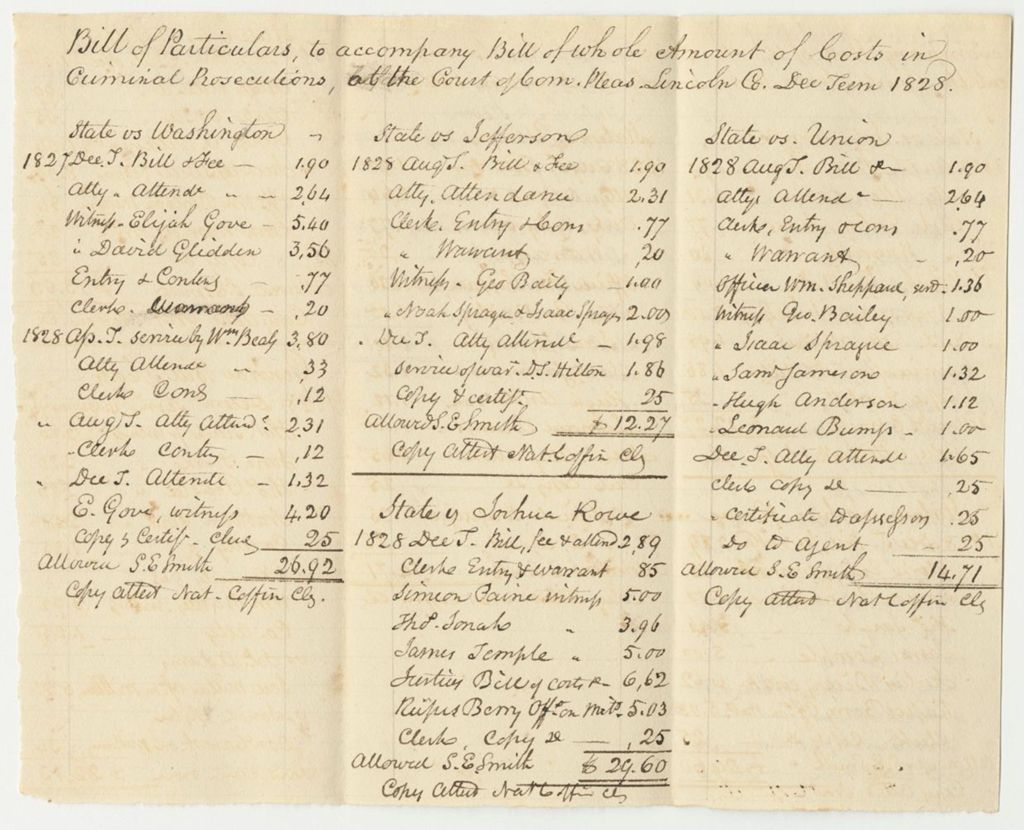 Bill of Particulars, to accompany Bill of whole Amount of Costs in
Criminal Prosecutions, at the Court of Com. Pleas Lincoln Co. Dec Term 1828.
State vs Washington
1827 Dec. T. Bill & Fee — 1.90
Atty. Attendce " — 2.64
Witness - Elijah Gove — 5.40
" David Glidden 3.56
Entry & Conting — .77
Clerk. Warrant — .20
1828 Ap. T. service by Wm Bealy 3.80
Atty Attendce " .33
Clerk Cons — .12
" Aug T. Atty Attendce 2.31
Clerk Conting — .12
" Dec T. Attendce — 1.32
E. Gove, witness 4.20
Copy & Certif. Clerk 25
Allowed S. E Smith 26.92
Copy Attest Nat. Coffin Clk.
State vs Jefferson
1828 Aug T. Bill & Fee 1.90
Atty. Attendance 2.31
Clerk. Entry & Cons .77
" Warrant ,20
Witness - Geo Baily — 1.00
" Noah Sprague & Isaac Sprague 2.00
" Dec T. Atty attendce — 1.98
service of war. D. S. Hilton 1.86
Copy & certif. 25
Allowed S. E Smith $ 12.27
Copy Attest Nat. Coffin Clk
State vs Joshua Rowe
1828 Dec T. Bill, fee & attend 2,89
Clerk Entry & warrant 85
Simeon Paine witness 5.00
Thos. Jonah " 3.96
James Temple " 5.00
Justices Bill of costs &c 6,62
Rufus Berry Offr. on Mits. 5.03
Clerk, Copy &c — ,25
Allowed S. E Smith $ 29.60
Copy Attest Nat Coffin clk
State vs. Union
1828 Aug T. Bill &c — 1.90
Attys Attendce — 2.64
Clerk, Entry & cons .77
" Warrant ,20
Officer Wm. Sheppard, serv. 1.36
Witness Geo. Bailey 1.00
" Isaac Sprague 1.00
" Saml Jameson 1.32
" Hugh Anderson 1.12
" Leonard Bump - 1.00
Dec. T. Atty attendce 1.65
Clerk copy &c — ,25
" Certificate to assessors .25
Do to agent — 25
Allowed S. E Smith 14.71
Copy Attest Nat Coffin Clk